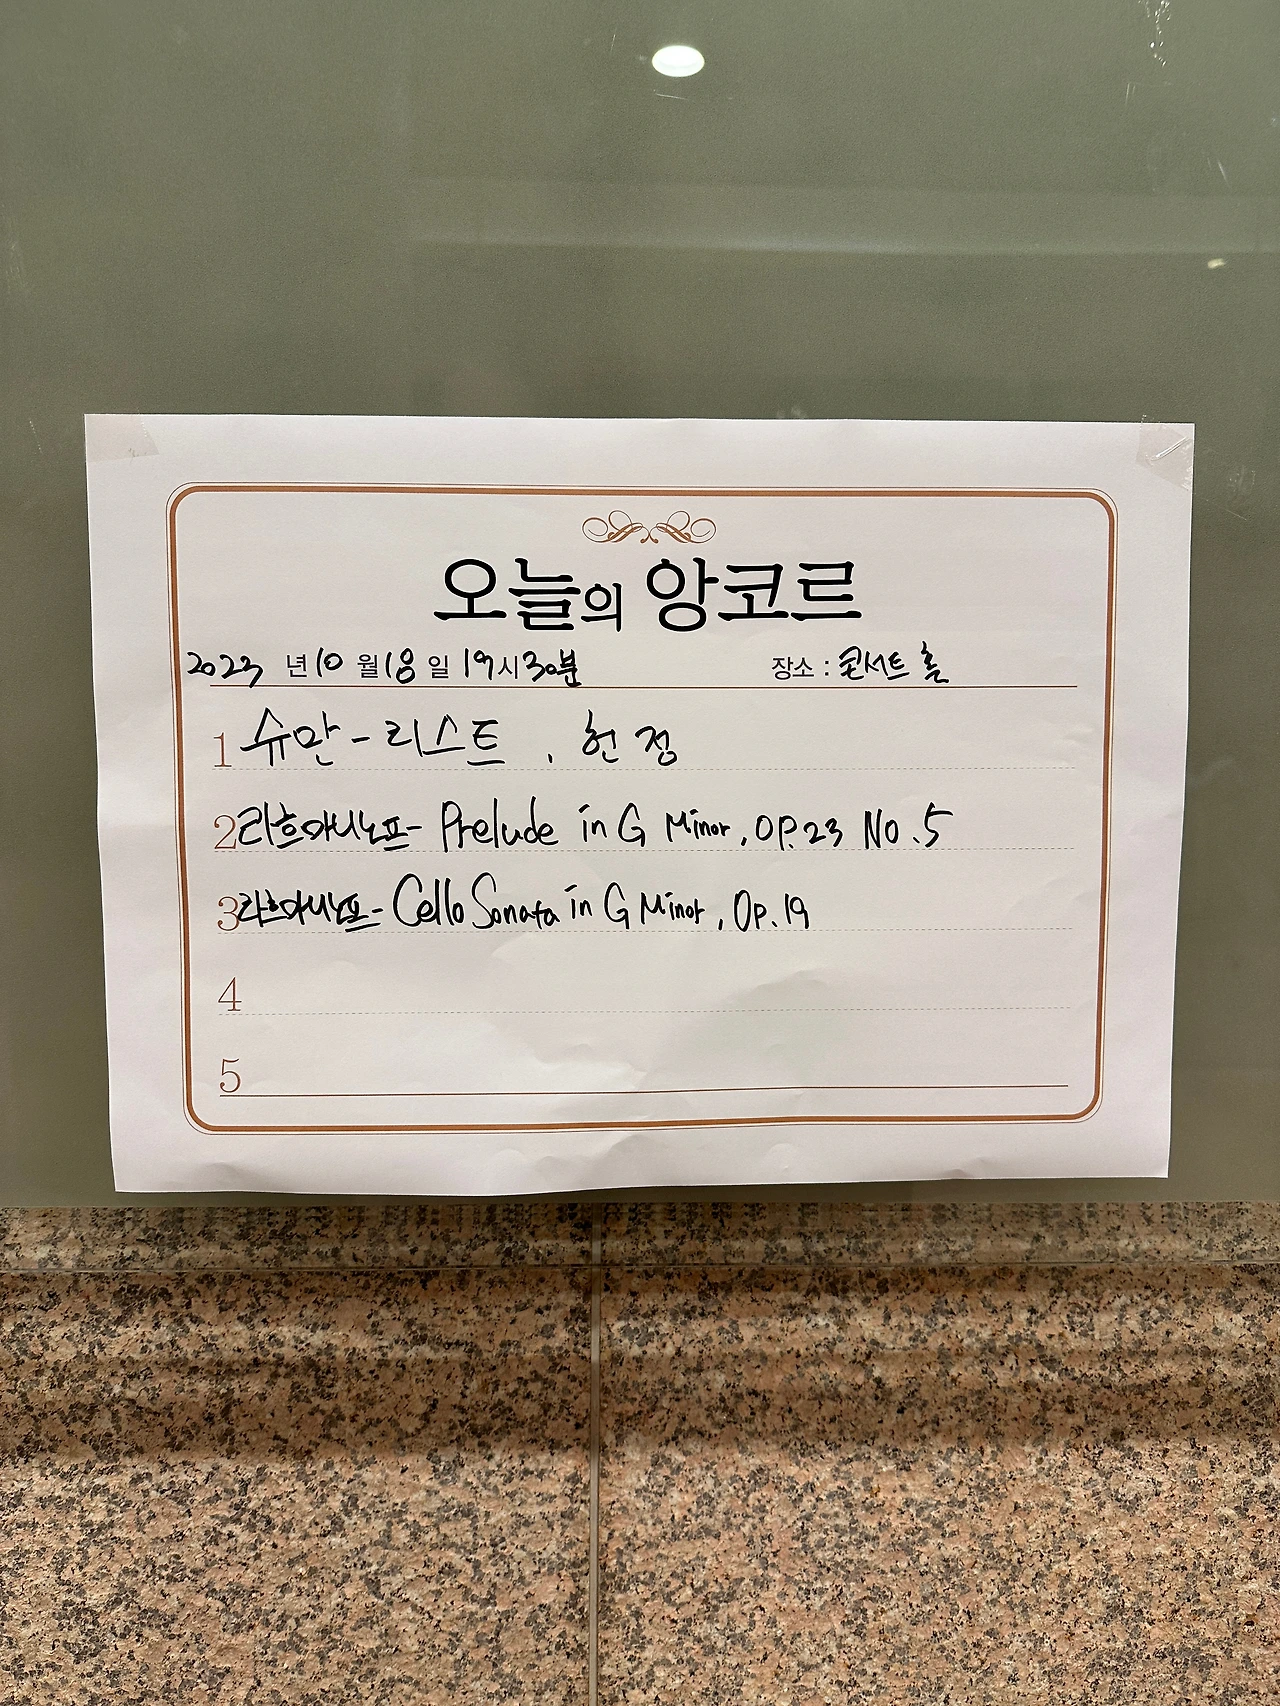 오늘의 앙코르
2023 년 10 월 18 일 19시 30분 장소 : 콘서트 홀
1 슈만 - 리스트 , 헌정
2 라흐마니노프 - Prelude in G Minor, OP.23 No.5
3 라흐마니노프 - Cello Sonata in G Minor, Op.19
4
5